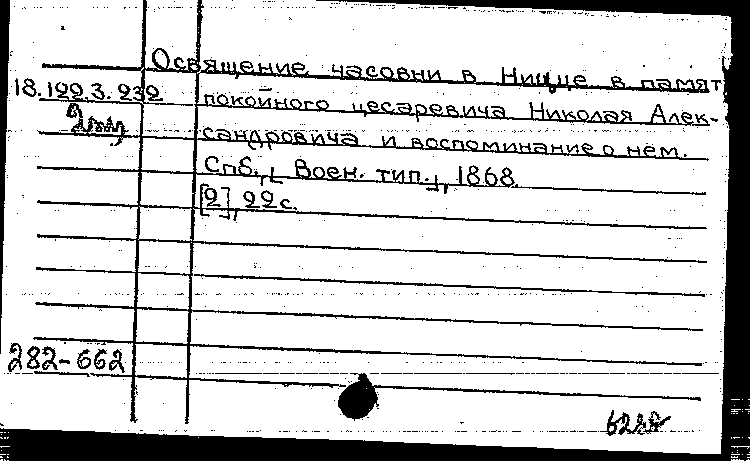 Освящение часовни в Ницце в памят
18.199.3.232 покойного цесаревича Николая Алек-
сандровича и воспоминание о нем.
Спб., [Воен. тип.], 1868.
[2], 22 с.
282-662